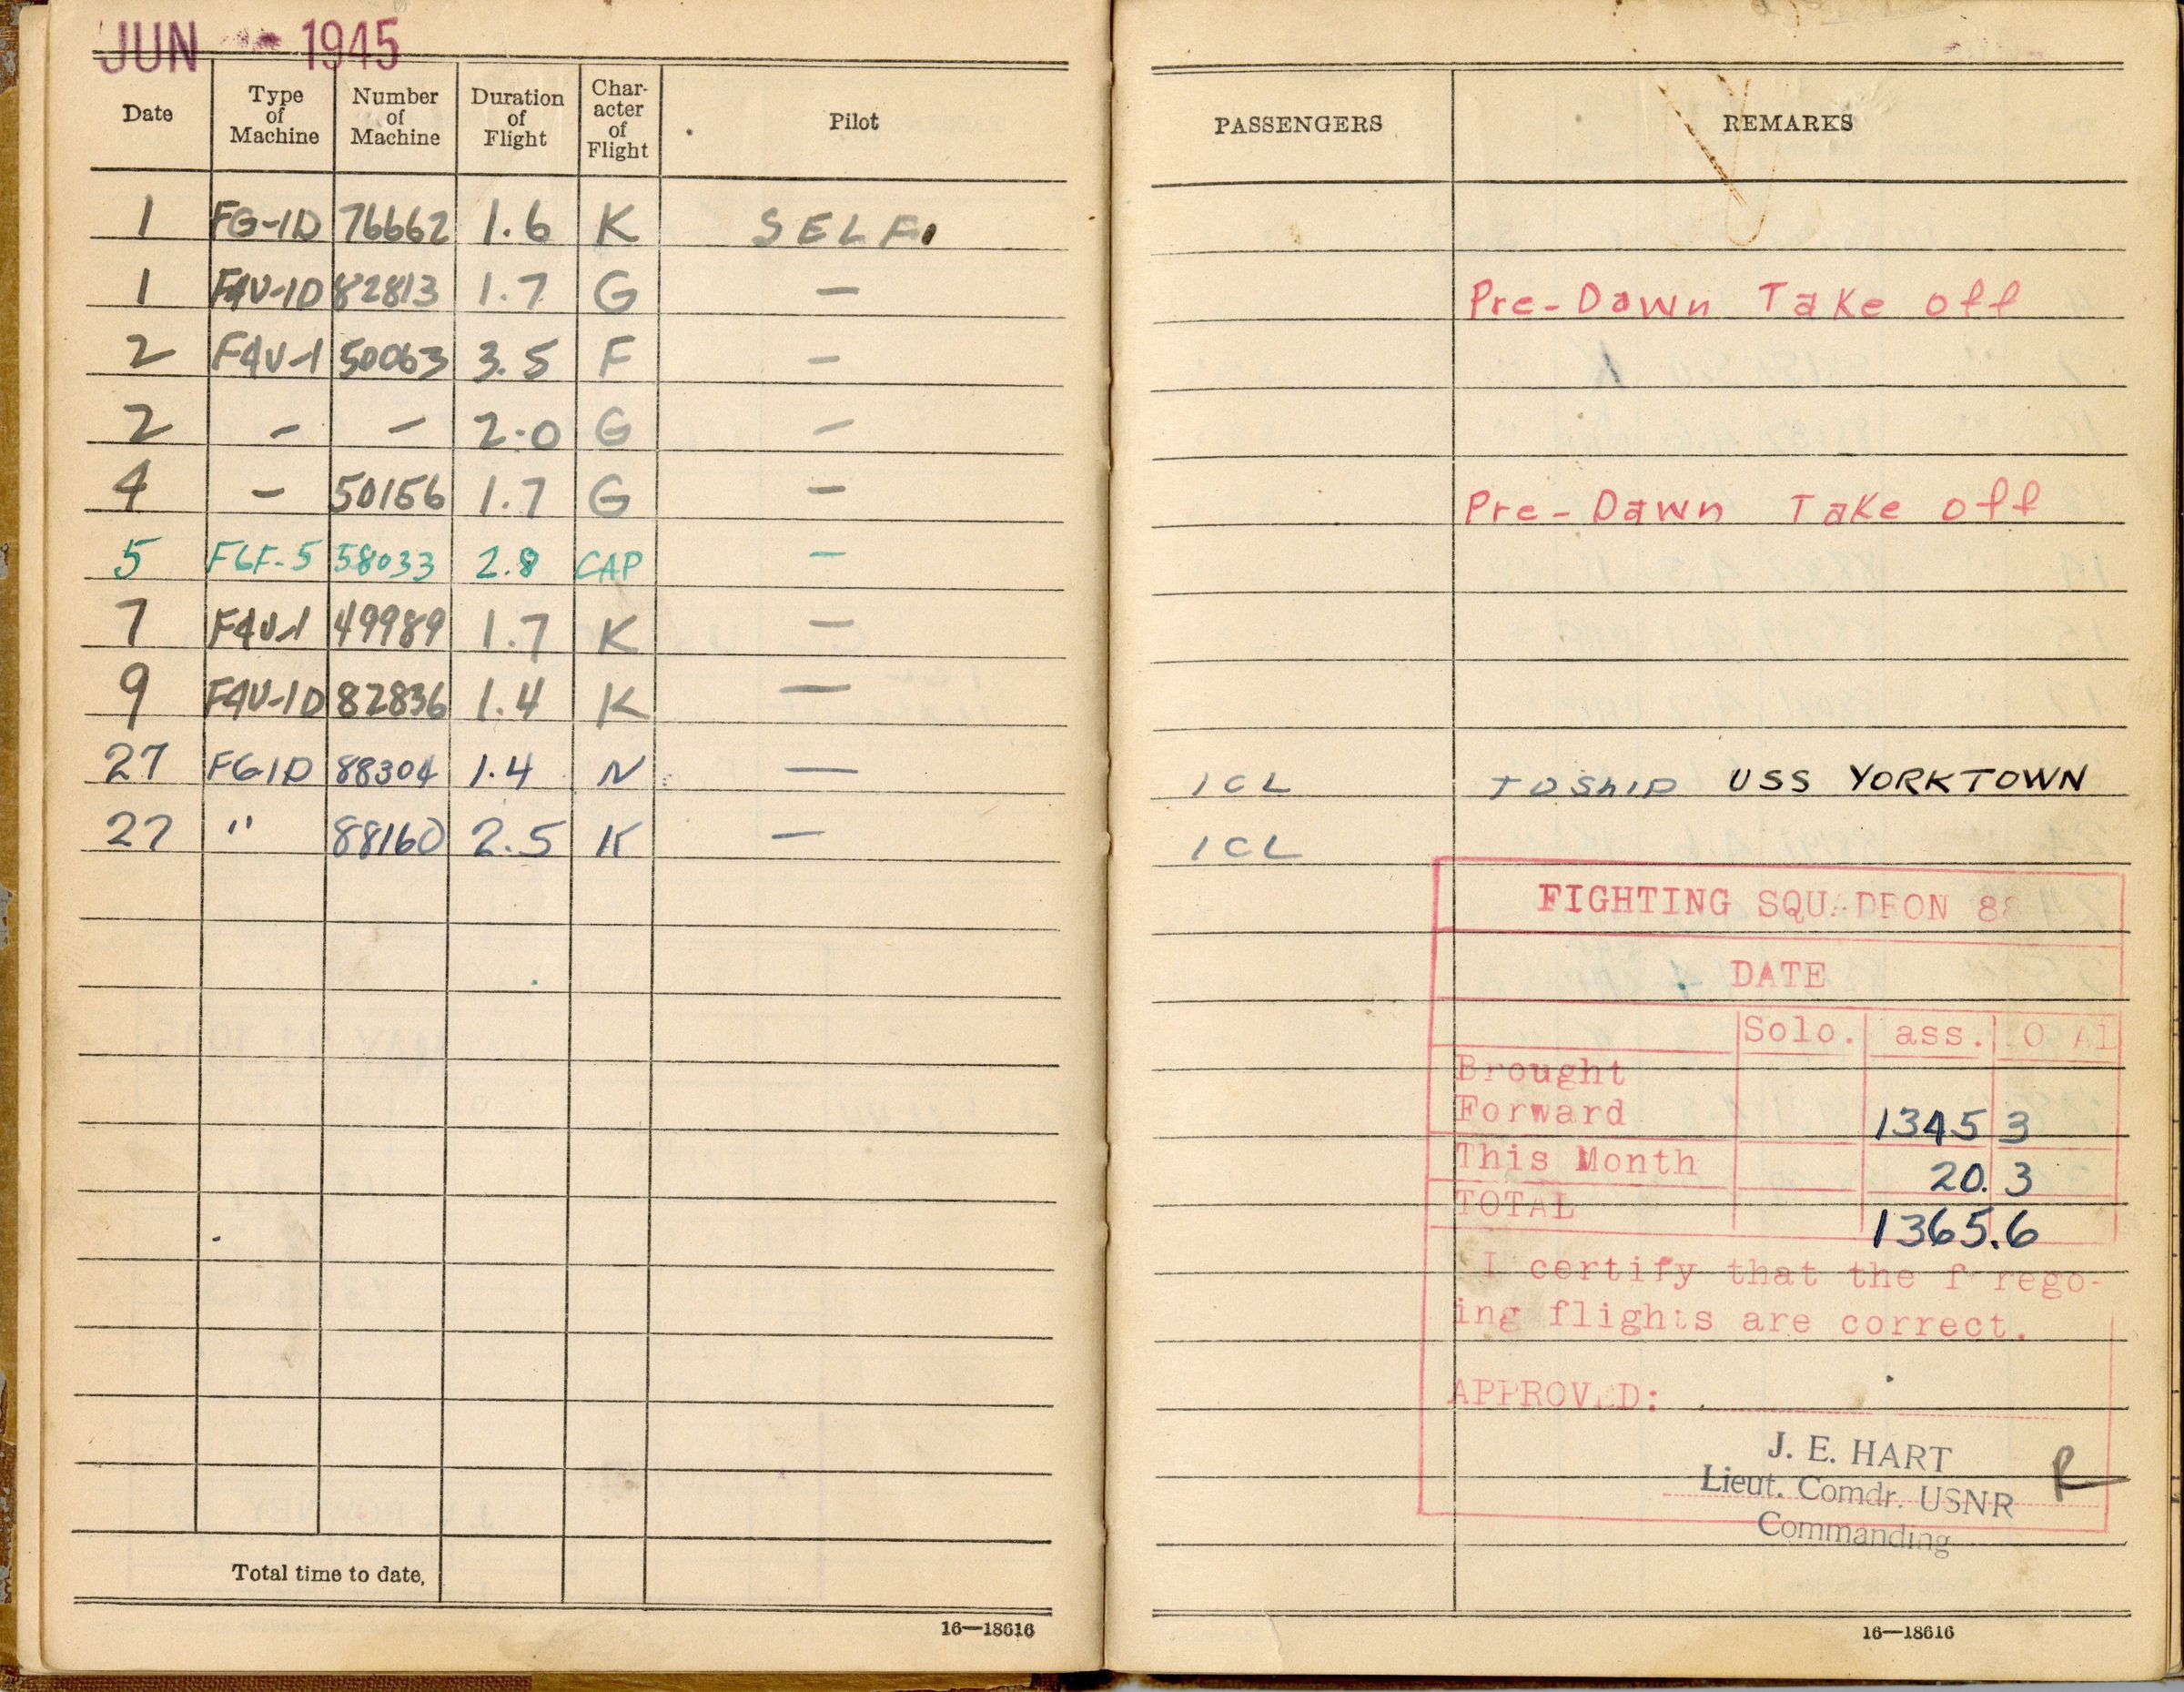 JUN 1945
Date | Type of Machine | Number of Machine | Duration of Flight | Character of Flight | Pilot | PASSENGERS | REMARKS
1 | FG-1D | 76662 | 1.6 | K | SELF.
1 | F4U-1D | 82813 | 1.7 | G | — | | Pre-Dawn Take off
2 | F4U-1 | 50063 | 3.5 | F | —
2 | - | - | 2.0 | G | —
4 | - | 50156 | 1.7 | G | — | | Pre-Dawn Take off
5 | F6F-5 | 58033 | 2.8 | CAP | —
7 | F4U-1 | 49989 | 1.7 | K | —
9 | F4U-1D | 82836 | 1.4 | K | —
27 | FG1D | 88304 | 1.4 | N | — | 1CL | TO ShIP USS YORKTOWN
27 | " | 88160 | 2.5 | K | — | 1CL
FIGHTING SQU DRON 88
DATE
Solo. ass. O AL
Brought
Forward 1345 3
This Month 20.3
TOTAL 1365.6
I certify that the f rego-
ing flights are correct.
APPROVED:
J. E. HART
Lieut. Comdr. USNR
Commanding
R
Total time to date,
16—18616
16—18616